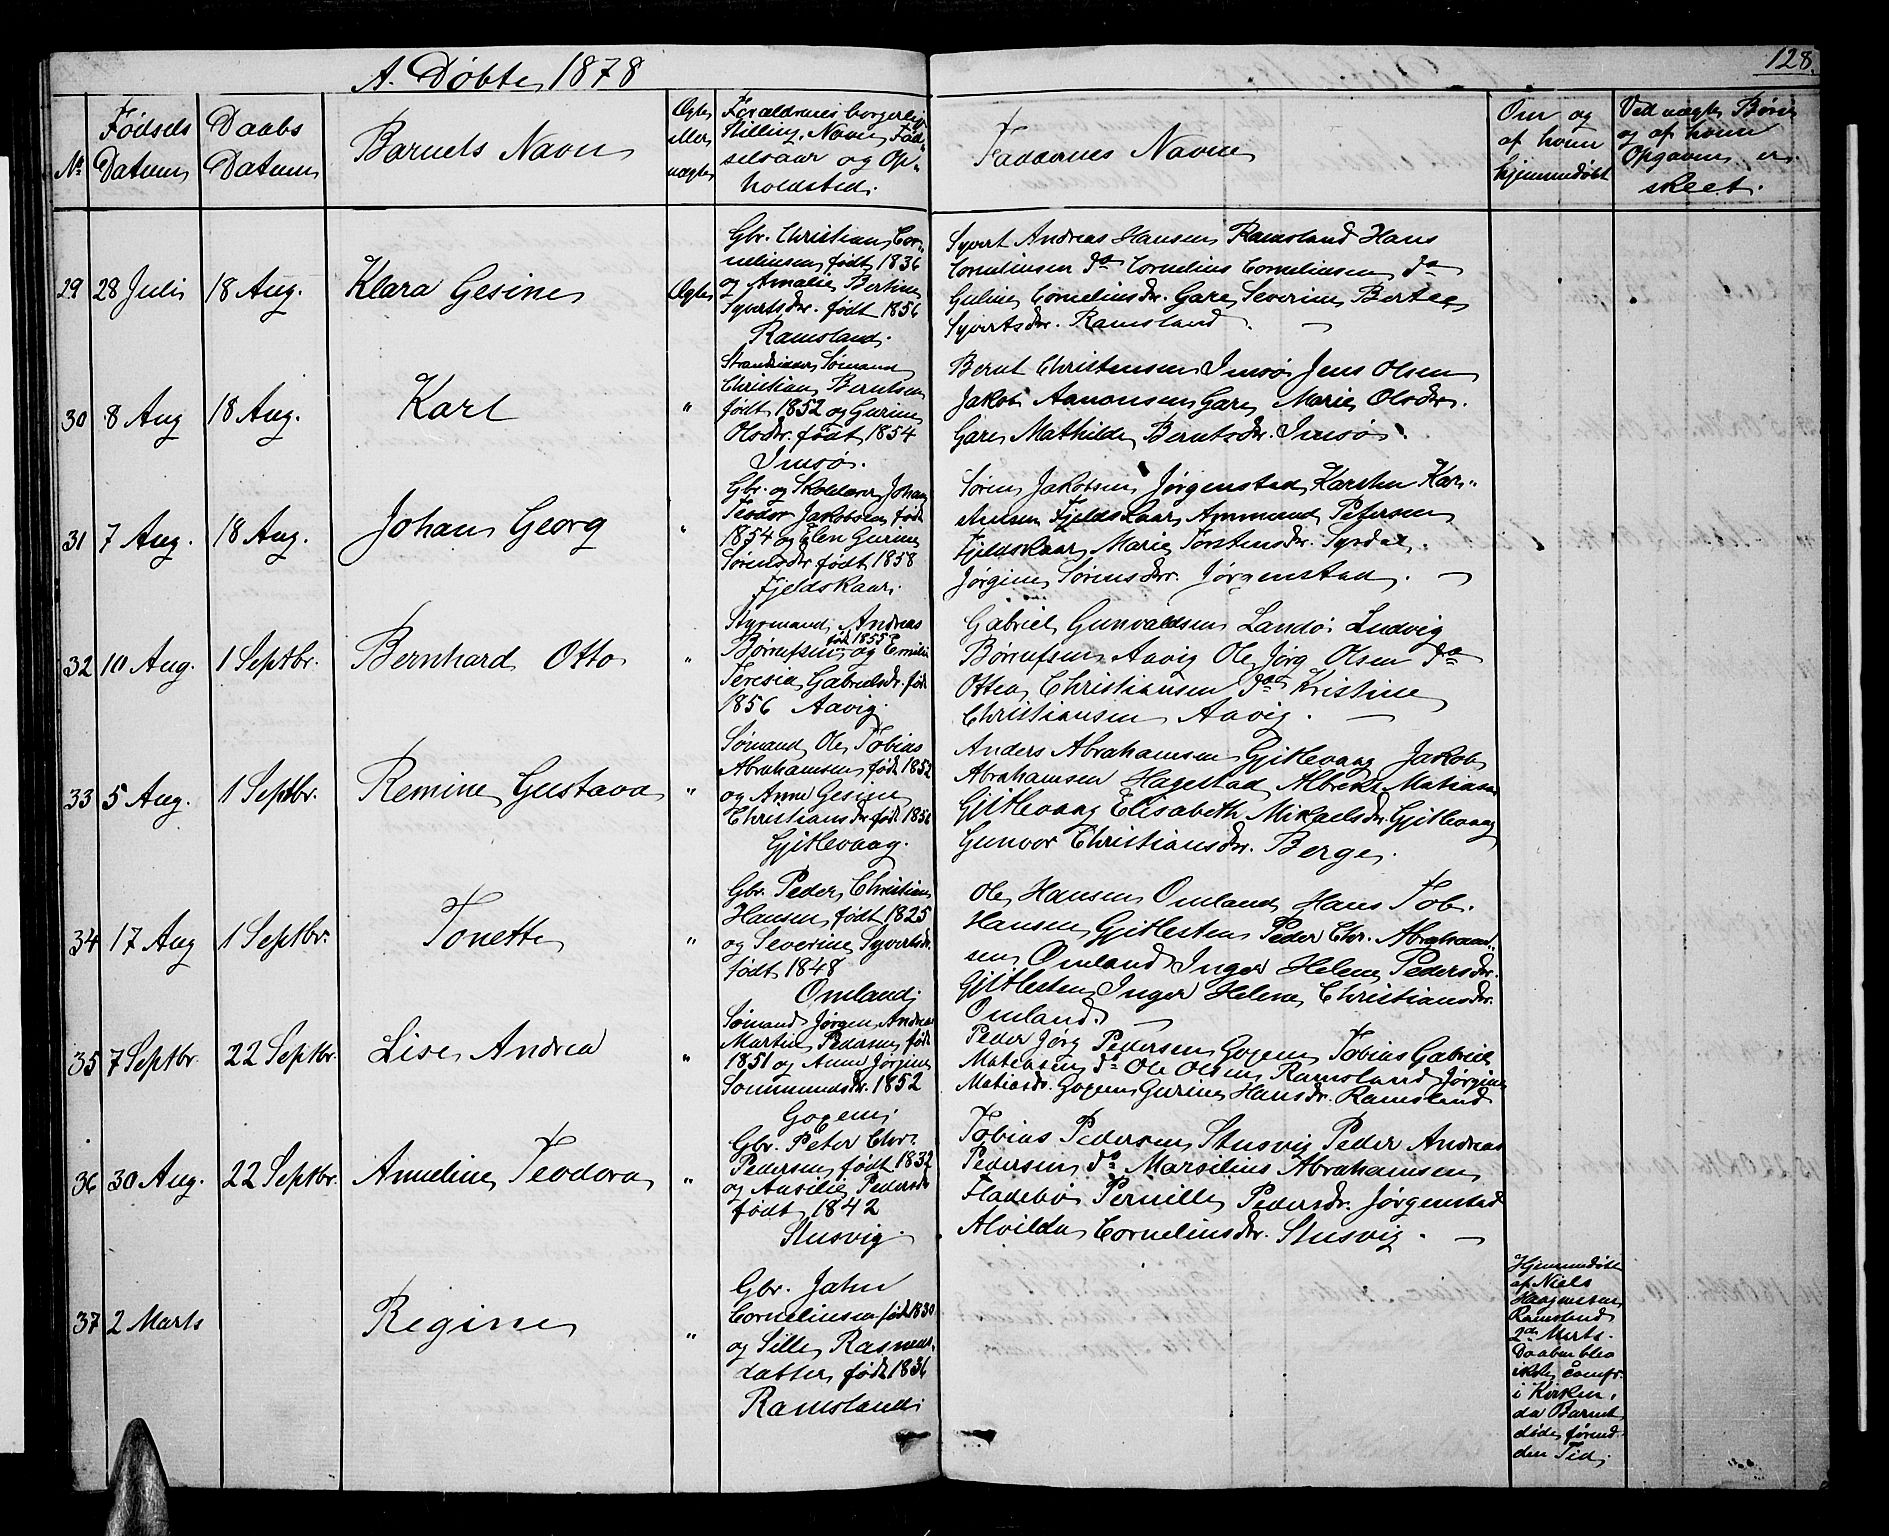 128.
A. Døbte 1878
No Fødsels Datum
Daabs Datum
Barnets Navn
Ægte eller uægte
Forældrenes borgerlig
Stilling, Navn, Fød-
selsaar og Op-
holdsted.
Faddernes Navne
Om og
af hvem
hjemmedøbt
Ved uægte Børn
og af hvem
Opgaven er
skeet.
29 28 Juli 18 Aug. Klara Gesine Ægte
Gbr. Christian Cor-
neliusen født 1836
og Amalie Bertine
Syvertsdr. født 1856
Ramsland.
Syvert Andreas Hansen Ramsland Hans
Corneliusen do Cornelius Corneliusen do
Guline Corneliusdr. Gare Severine Bertee
Syvertsdr. Ramsland.
30 8 Aug 18 Aug. Karl "
Strandsidder Sømand
Christian Berntsen
født 1852 og Gurine
Olsdr. født 1854
Imsø.
Bernt Christensen Imsø Jens Olsen
Jakob Aanonsen Gare Marie Olsdr.
Gare Mathilde Berntsdr. Imsø.
31 7 Aug. 18 Aug. Johan Georg "
Gbr. og Skolelærer Johan
Teodor Jakobsen født
1854 og Elen Gurine
Sørensdr. født 1858
Fjeldskaar.
Søren Jakobsen Jørgenstad Karsten Kar-
stensen Fjeldskaar Ammund Petersen
Fjeldskaar Marie Torstensdr. Syrdal
Jørgine Sørensdr. Jørgenstad.
32 10 Aug. 1 Septbr. Bernhard Otto "
Styrmand Andreas
Børrufsen født 1855 og Emilie
Teresia Gabrielsdr. født
1856 Aavig.
Gabriel Gunvaldsen Landø Ludvig
Børrufsen Aavig Ole Jørg Olsen do
Ottea Christiansen do Kristine
Christiansen Aavig.
33 5 Aug. 1 Septbr. Remine Gustava "
Sømand Ole Tobias
Abrahamsen født 1852
og Anne Gesine
Christiansdr født 1856
Gjitlevaag.
Anders Abrahamsen Gjitlevaag Jakob
Abrahamsen Hagestad Albrekt Matiasen
Gjitlevaag Elisabeth Mikaelsdr. Gjitlevaag
Gunvor Christiansdr. Berge.
34 17 Aug 1 Septbr. Tonette "
Gbr. Peder Christian
Hansen født 1825
og Severine Syvertsdr.
født 1848
Omland.
Ole Hansen Omland Hans Tob.
Hansen Gjitlesten Peder Chr. Abraham-
sen Omland Inger Helene Pedersdr.
Gjitlesten Inger Helene Christiansdr.
Omland.
35 7 Septbr. 22 Septbr. Lise Andrea "
Sømand Jørgen Andreas
Martin Pedersen født
1851 og Anne Jørgine
Sommundsdr. 1852
Gogem.
Peder Jørg Pedersen Gogem Tobias Gabriel
Matiasen do Ole Olsen Ramsland Jørgine
Matiasdr. Gogem Gurine Hansdr. Ramsland
36 30 Aug. 22 Septbr. Anneline Teodora "
Gbr. Peter Chr.
Pedersen født 1832
og Ansilie Pedersdr
født 1842
Stusvig.
Tobias Pedersen Stusvig Peder Andreas
Pedersen do Marsilius Abrahamsen
Fladebø Pernille Pedersdr. Jørgenstad
Alvilda Corneliusdr. Stusvig.
37 2 Marts Regine "
Gbr. Jahn
Corneliusen født 1830
og Sille Rasmus-
datter født 1836
Ramsland.
Hjemmedøbt
af Niels
Haagensen
Ramsland
2den Marts.
Daaben blev
ikke comfr.
i Kirken,
da Barnet
døde forind-
den Tid.